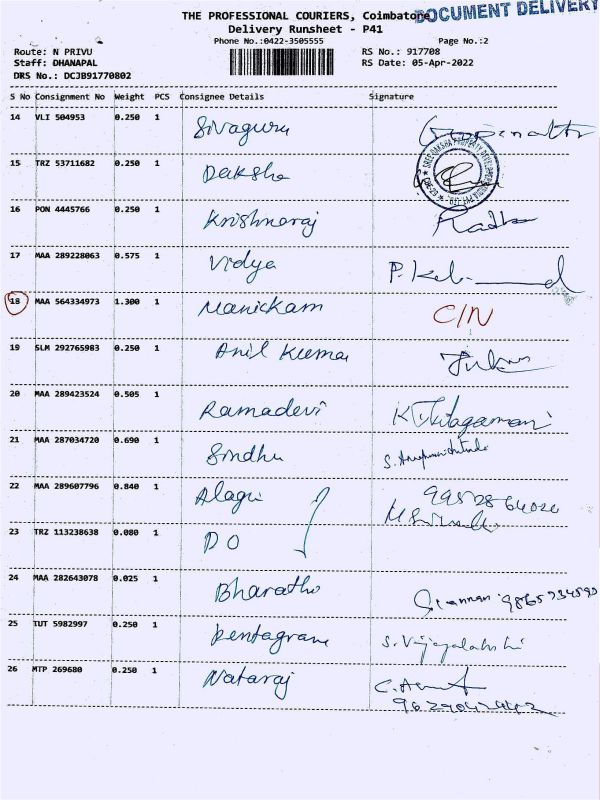 THE PROFESSIONAL COURIERS, Coimbatore
DOCUMENT DELIVERY
Delivery Runsheet - P41
Phone No.:0422-3505555
Page No.:2
Route: N PRIVU
RS No.: 917708
Staff: DHANAPAL
RS Date: 05-Apr-2022
DRS No.: DCJB91770802
S No Consignment No Weight PCS Consignee Details Signature
14 VLI 504953 0.250 1 Sivaguru
15 TRZ 53711682 0.250 1 Daksha
16 PON 4445766 0.250 1 Krishnaraj Radha
17 MAA 289228063 0.575 1 Vidya
18 MAA 564334973 1.300 1 Manickam C/N
19 SLM 292765983 0.250 1 Anil Kumar
20 MAA 289423524 0.505 1 Ramadevi
21 MAA 287034720 0.690 1 Sindhu
22 MAA 289607796 0.840 1 Alagu
23 TRZ 113238638 0.080 1 DO
24 MAA 282643078 0.025 1 Bharathi
25 TUT 5982997 0.250 1 Pentagram S. Vijayalakshi
26 MTP 269680 0.250 1 Nataraj